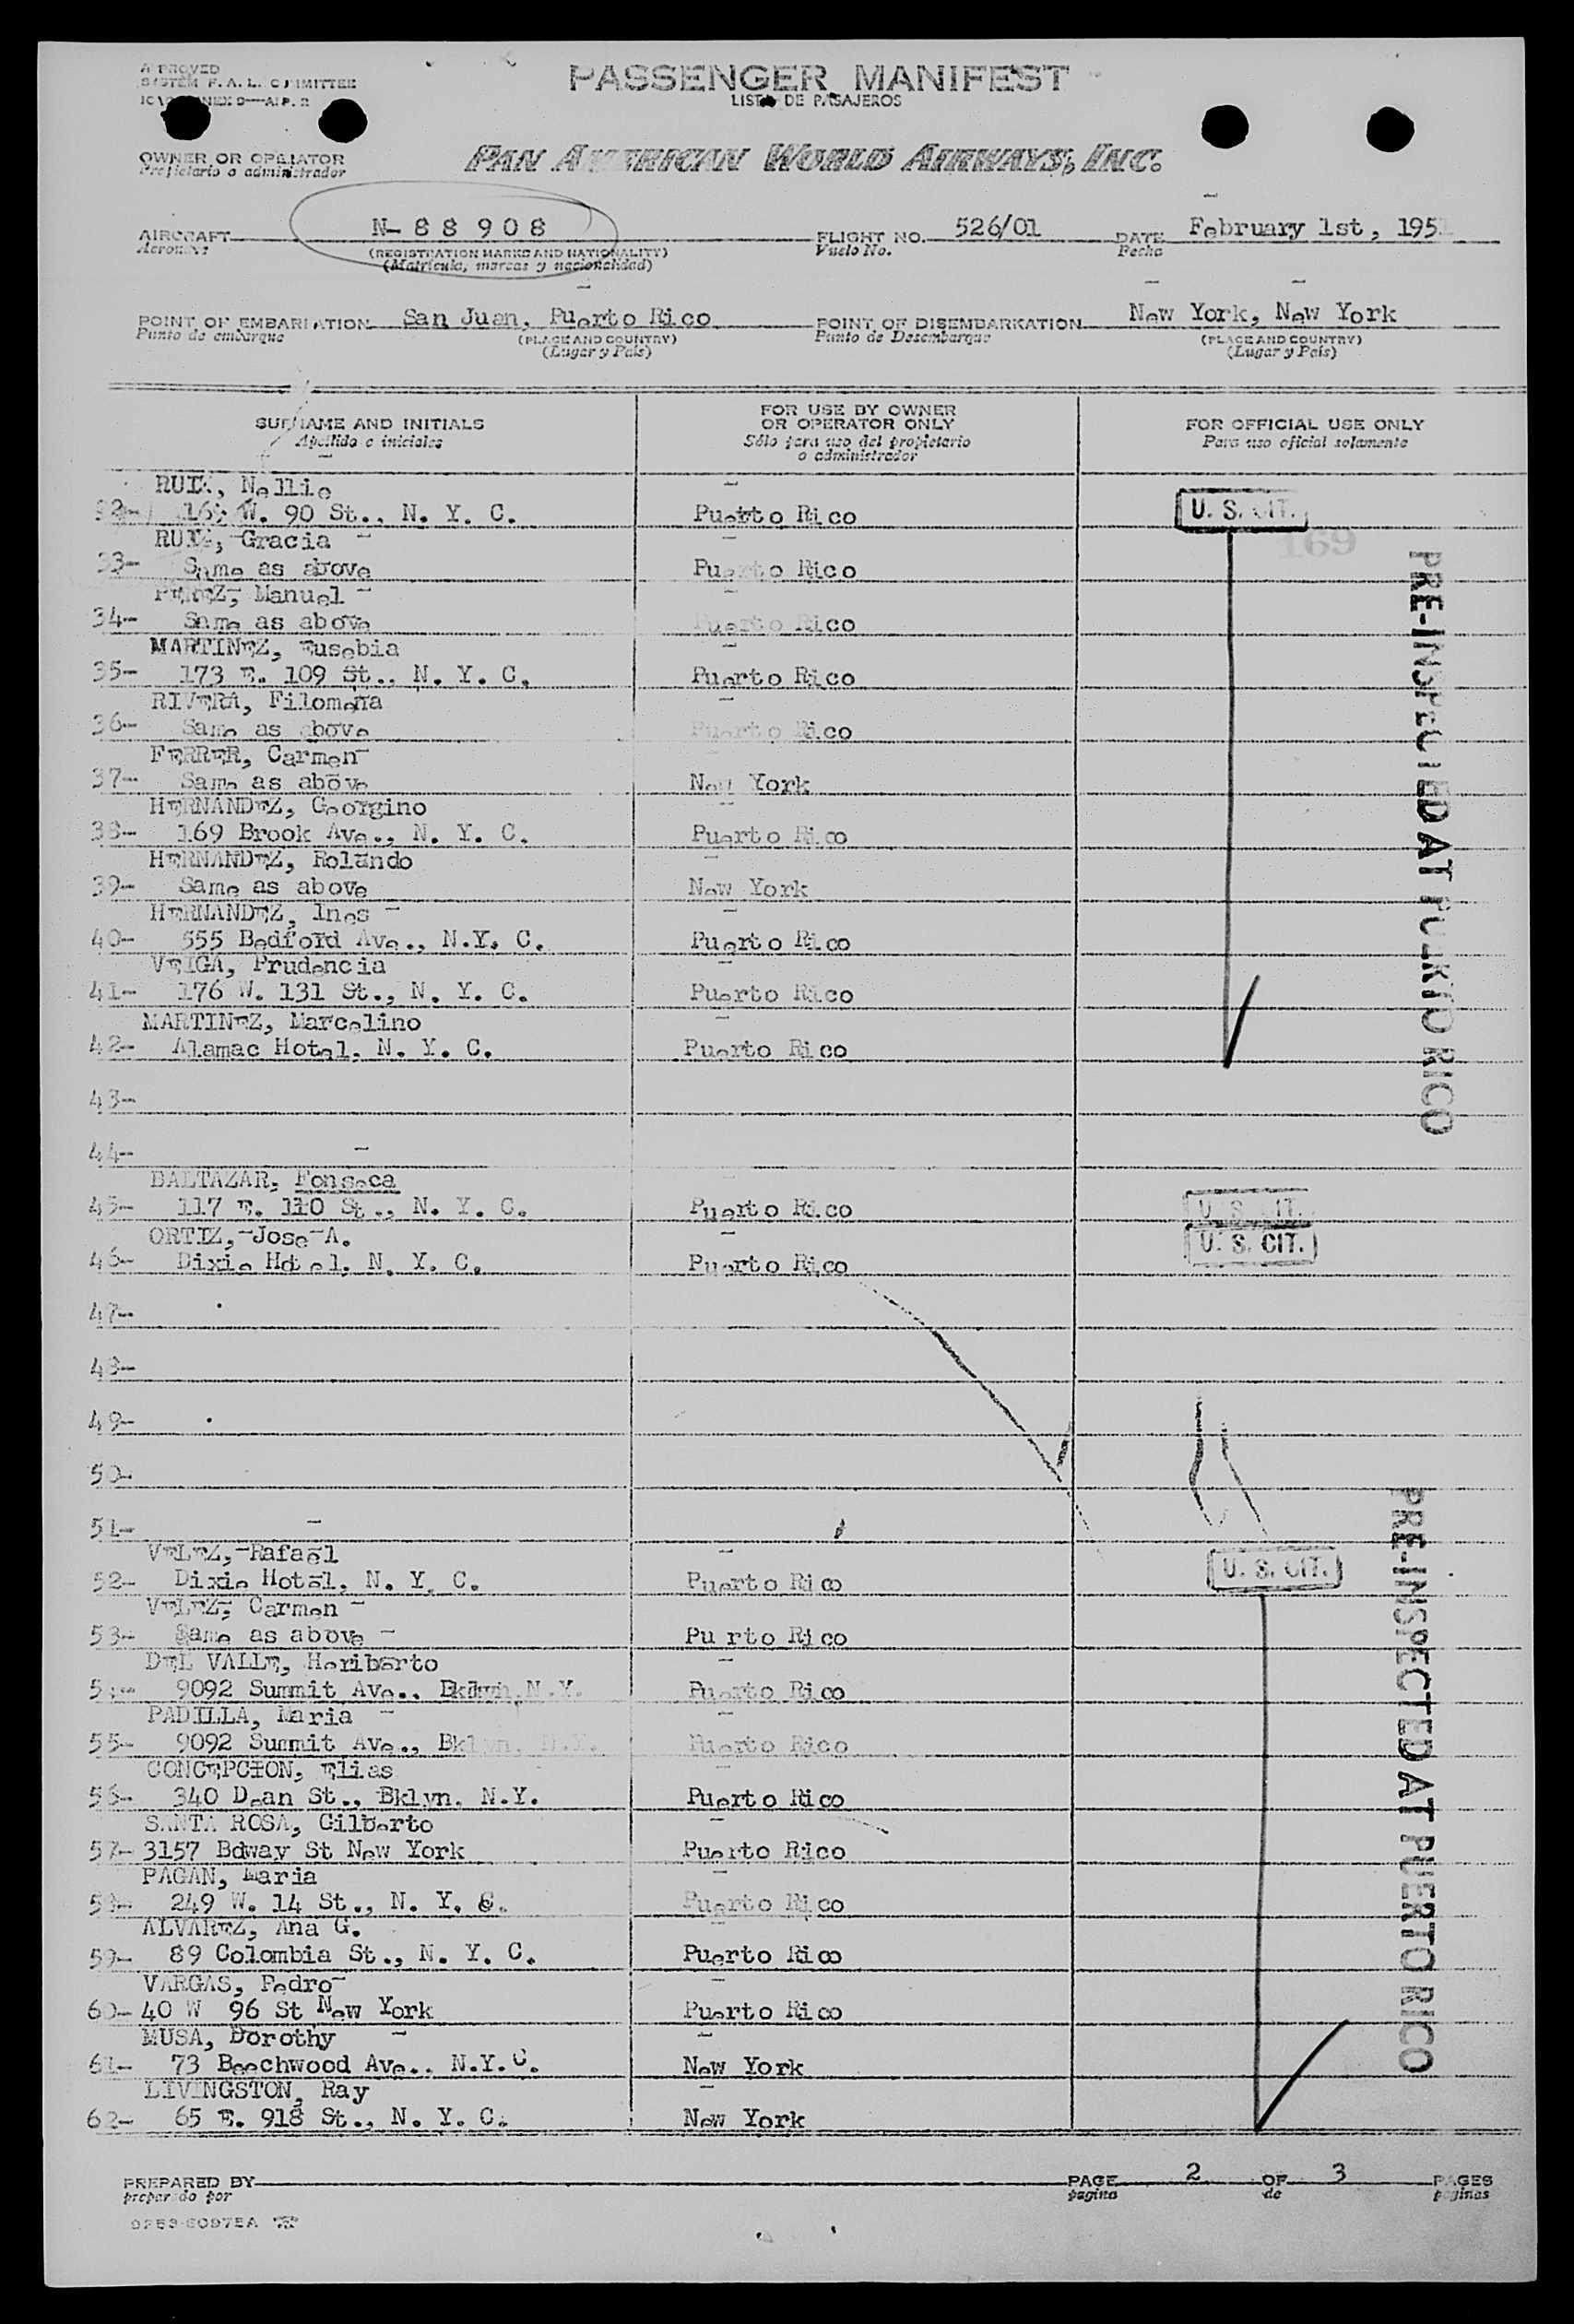 APPROVED
SYSTEM F. A. L. COMMITTEE
ICAO ANNEX 9—AIP. 2
PASSENGER MANIFEST
LISTA DE PASAJEROS
OWNER OR OPERATOR
Propietario o administrador
PAN AMERICAN WORLD AIRWAYS, INC.
AIRCRAFT N-88908 FLIGHT NO. 526/01 DATE February 1st, 195
Aeronave (REGISTRATION MARKS AND NATIONALITY) Vuelo No. Fecha
(Matricula, marcas y nacionalidad)
POINT OF EMBARKATION San Juan, Puerto Rico POINT OF DISEMBARKATION New York, New York
Punto de embarque (PLACE AND COUNTRY) Punto de Desembarque (PLACE AND COUNTRY)
(Lugar y País) (Lugar y País)
SURNAME AND INITIALS FOR USE BY OWNER OR OPERATOR ONLY FOR OFFICIAL USE ONLY
Apellido e iniciales Sólo para uso del propietario o administrador Para uso oficial solamente
RUIZ, Nellie
32- W. 90 St., N. Y. C. Puerto Rico U. S. CIT.
RUIZ, Gracia 169
33- Same as above Puerto Rico
PEREZ, Manuel
34- Same as above Puerto Rico
MARTINEZ, Eusebia
35- 173 E. 109 St., N. Y. C. Puerto Rico
RIVERA, Filomena
36- Same as above Puerto Rico
FERRER, Carmen
37- Same as above New York
HERNANDEZ, Georgino
38- 169 Brook Ave., N. Y. C. Puerto Rico
HERNANDEZ, Rolando
39- Same as above New York
HERNANDEZ, Ines
40- 555 Bedford Ave., N.Y. C. Puerto Rico
VEIGA, Prudencia
41- 176 W. 131 St., N. Y. C. Puerto Rico
MARTINEZ, Marcelino
42- Alamac Hotel, N. Y. C. Puerto Rico
PRE-INSPECTED AT PUERTO RICO
43-
44-
BALTAZAR, Fonseca
45- 117 E. 110 St., N. Y. C. Puerto Rico U. S. CIT.
ORTIZ, Jose A. U. S. CIT.
46- Dixie Hotel, N. Y. C. Puerto Rico
47-
48-
49-
50-
51-
VELEZ, Rafael
52- Dixie Hotel, N. Y. C. Puerto Rico U. S. CIT.
VELEZ, Carmen
53- Same as above Pu rto Rico
DEL VALLE, Heriberto
54- 9092 Summit Ave., Bklyn, N.Y. Puerto Rico
PADILLA, Maria
55- 9092 Summit Ave., Bklyn, N.Y. Puerto Rico
CONCEPCION, Elias
56- 340 Dean St., Bklyn, N.Y. Puerto Rico
SANTA ROSA, Gilberto
57- 3157 Bdway St New York Puerto Rico
PAGAN, Maria
58- 249 W. 14 St., N. Y. C. Puerto Rico
ALVAREZ, Ana G.
59- 89 Colombia St., N. Y. C. Puerto Rico
VARGAS, Pedro
60- 40 W 96 St New York Puerto Rico
MUSA, Dorothy
61- 73 Beechwood Ave., N.Y.C. New York
LIVINGSTON, Ray
62- 65 E. 918 St., N. Y. C. New York
PRE-INSPECTED AT PUERTO RICO
PREPARED BY PAGE 2 OF 3 PAGES
preparado por pagina de paginas